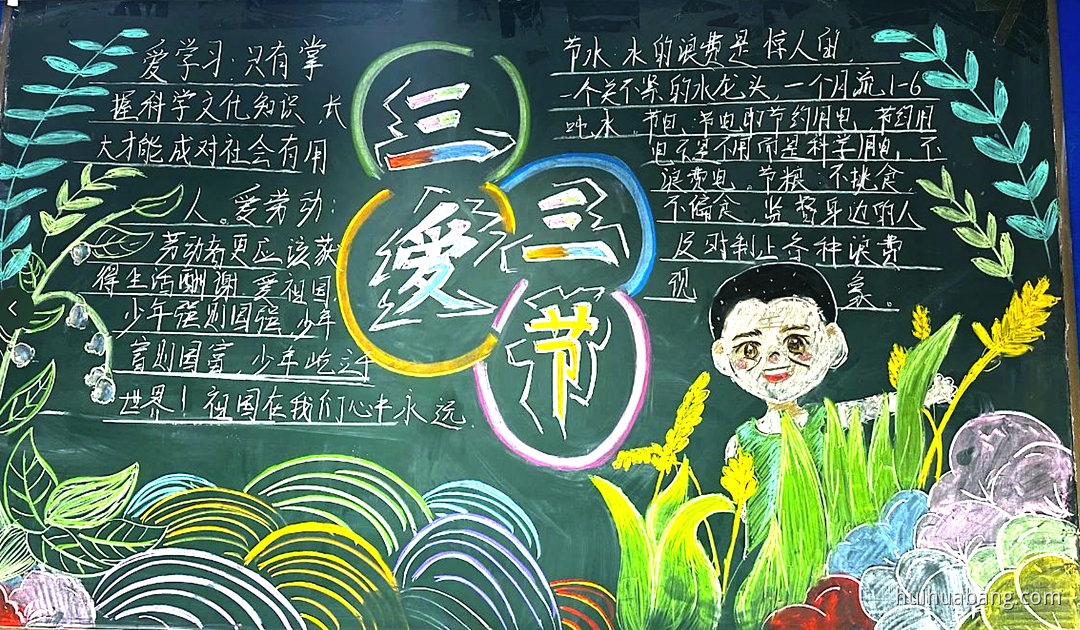 爱学习:只有掌
握科学文化知识,长
大才能成对社会有用
人。爱劳动:
劳动者更应该获
得生活酬谢.爱祖国
少年强则国强,少年
富则国富,少年屹立于
世界!祖国在我们心中永远.
三
爱
三
节
节水:水的浪费是惊人的,
一个关不紧的水龙头,一个月流1-6
吨水。节电:节电即节约用电,节约用
电不是不用而是科学用电,不
浪费电。节粮:不挑食,
不偏食,监督身边的人
及时制止各种浪费
现 象。
huihuabang.com